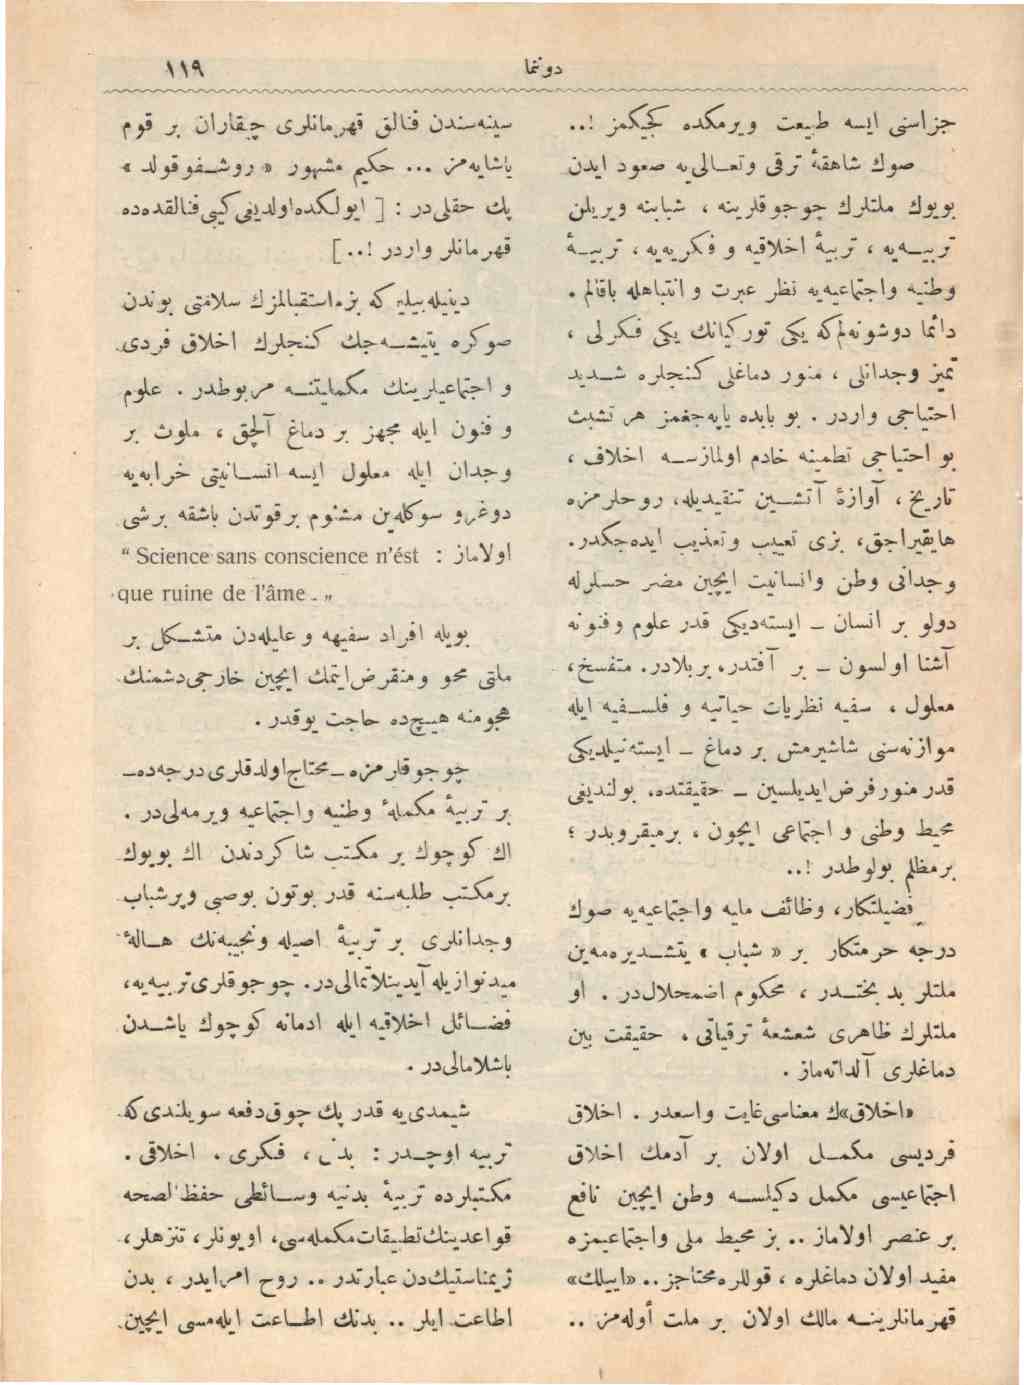 دوننما
١١٩
جزاسنی ایسه طبیعت ویرمکده کجیکمز !..
صوك شاهقهٔ ترقی وتعـالی‌یه صعود ایدن
بویوك ملتلرك چوجوقلرینه ، شبابنه ویریلن
تربیـه‌یه ، تربیهٔ اخلاقیه و فکریه‌یه ، تربیـهٔ
وطنیه واجتماعیه‌یه نظر عبرت و انتباهله باقالم .
دائما دوشونه‌لم‌که یکی تورکیانك یکی فـکرلی ،
تمیز وجدانلی ، منور دماغلی کنجلره شـدید
احتیاجی واردر . بو بابده یاپه‌جغمز هر تشبث
بو احتیاجی تطمینه خادم اولمازسـه اخلاف ،
تاریخ ، آوازهٔ آتشـین تنقیدیله، روحلرمزه
هایقیراجق، بزی تعییب وتعذیب ایده‌جکدر.
وجدانی وطن وانسانیت ایچین مضر حسلرله
دولو بر انسان ــ ایسته‌دیکی قدر علوم وفنونه
آشنا اولسون ــ بر آفتدر، بربلادر. متفسخ،
معلول ، سفیه نظریات حیاتیه و فلسـفیه ایله
موازنه‌سنی شاشیرمش بر دماغ ــ ایسته‌نیلدیکی
قدر منور فرض ایدیلسین ــ حقیقتده، بولندیغی
محیط وطنی و اجتماعی ایچون ، برمیقروبدر ؛
برمظلم بولوطدر !..
فضیلتکار، وظائف ملیه واجتماعیه‌یه صوك
درجه حرمتکار بر « شباب » یتشـدیره‌مه‌ین
ملتلر بدبختـدر ، محکوم اضمحلال‌در . او
ملتلرك ظاهری شعشعهٔ ترقیاتی ، حقیقت بین
دماغلری آلداته‌ماز .
«اخلاق»ك معناسی‌غایت واسعدر . اخلاق
فردیسی مکمـل اولان بر آدمك اخلاق
اجتماعیسی مکمل دکیلسـه وطن ایچین نافع
بر عنصر اولاماز .. بز محیط ملی واجتماعیمزه
مفید اولان دماغلره ، قوللره محتاجز .. «اییلك»
قهرمانلرینـه مالك اولان بر ملت أوله‌مز ..
سینه‌سندن فنالق قهرمانلری چیقاران بر قوم
یاشایه‌مز ... حکیم مشهور « روشـفوقولد »
پك حقلی‌در : [ ایولـکده‌اولدیغی‌کیبی‌فنالقده‌ده
قهرمانلر واردر !.. ]
دینیله‌بیلیرکه بزم‌استقبالمزك سلامتی بوندن
صوکره یتیشـه‌جك کنجلرك اخلاق فردی
و اجتماعیلرینك مکملیتنـه مربوطدر . علوم
و فنون ایله مجهز بر دماغ آلچق ، ملوث بر
وجدان ایله معلول ایسه انسـانیتی خرابه‌یه
دوغرو سوکله‌ین مشئوم برقوتدن باشقه برشی
اولاماز : “ Science sans conscience n'ést
que ruine de l'âme. „
بویله افراد سفیهه و علیله‌دن متشـکل بر
ملتی محو ومنقرض‌ایتمك ایچین خارجی‌دشمنك
هجومنه هیـچ‌ده حاجت یوقدر .
چوجوقلرمزه ــ محتاج‌اولدقلری‌درجه‌ده ــ
بر تربیهٔ مکملهٔ وطنیه واجتماعیه ویرمه‌لی‌در .
اك کوچوك بر مکتب شاکردندن اك بویوك
برمکتب طلبه‌سنه قدر بوتون بوصبی وپرشباب
وجدانلری بر تربیهٔ اصیله ونجیبه‌نك هـالهٔ
میدنوازیله آیدینلاتمالی‌در. چوجوقلری‌تربیه‌یه،
فضـائل اخلاقیه ایله ادمانه کوچوك یاشـدن
باشلامالی‌در .
شیمدی‌یه قدر پك چوق‌دفعه سویلندی‌که
تربیه اوچـدر : بدنی ، فـکری . اخلاقی .
مکتبلرده تربیهٔ بدنیه وسـائطی حفظ الصحه
قواعدینك‌تطبیقات‌مکمله‌سی، اویونلر، تنزهلر،
ژیمناستیك‌دن عبارتدر .. روح امرایدر ، بدن
اطاعت ایلر .. بدنك اطـاعت ایله‌مسی ایچین